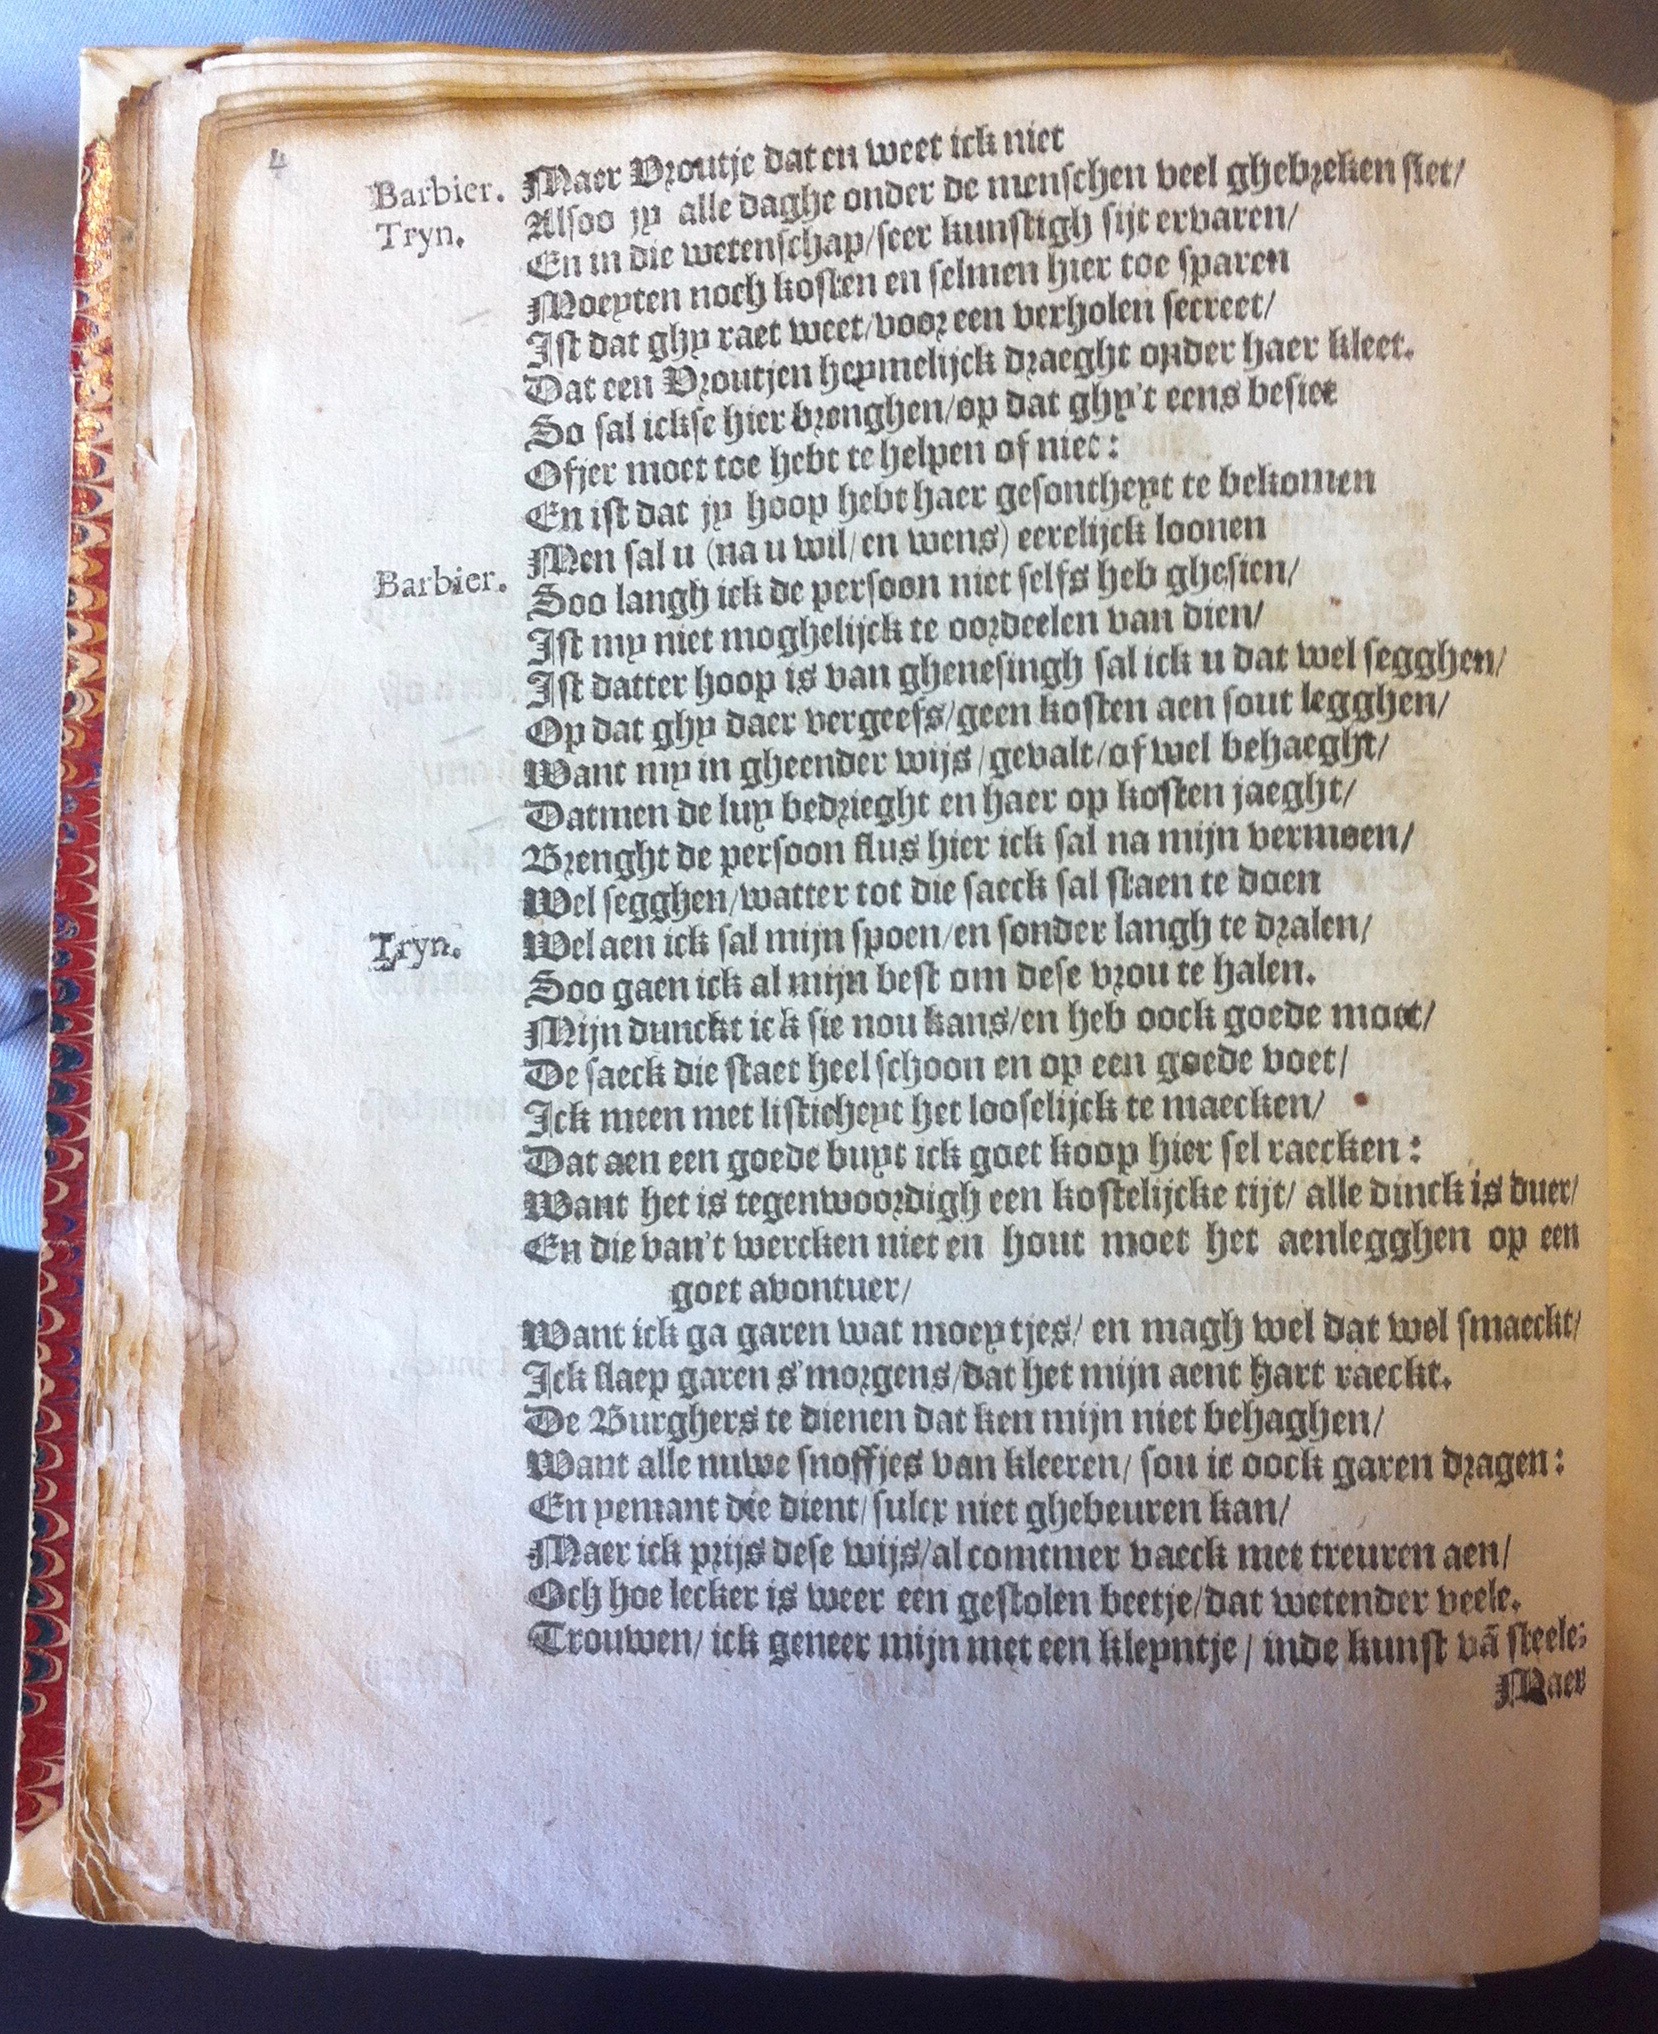 4
Barbier. Maer Vroutje dat en weet ick niet
Tryn. Alsoo jy alle daghe onder de menschen veel ghebreken siet/
En in die wetenschap/seer kunstigh sijt ervaren/
Moeyten noch kosten en selmen hier toe sparen
Ist dat ghy raet weet/voor een verholen secreet/
Dat een Vroutjen heymelijck draeght onder haer kleet.
So sal ickse hier brenghen/op dat ghy't eens besiet
Ofjer moet toe hebt te helpen of niet:
En ist dat jy hoop hebt haer gesontheyt te bekomen
Men sal u (na u wil/en wens) eerelijck loonen
Barbier. Soo langh ick de persoon niet selfs heb ghesien/
Ist my niet moghelijck te oordeelen van dien/
Ist datter hoop is van ghenesingh sal ick u dat wel segghen/
Op dat ghy daer vergeefs/geen kosten aen sout legghen/
Want my in gheender wijs/gevalt/of wel behaeght/
Datmen de luy bedrieght en haer op kosten jaeght/
Brenght de persoon flus hier ick sal na mijn vermoen/
Wel segghen/watter tot die saeck sal staen te doen
Tryn. Wel aen ick sal mijn spoen/en sonder langh te dralen/
Soo gaen ick al mijn best om dese vrou te halen.
Mijn dunckt ick sie nou kans/en heb oock goede moet/
De saeck die staet heel schoon en op een goede voet/
Ick meen met listicheyt het looselijck te maecken/
Dat aen een goede buyt ick goet koop hier sel raecken:
Want het is tegenwoordigh een kostelijcke tijt/ alle dinck is duer/
En die van't wercken niet en hout moet het aenlegghen op een
goet avontuer/
Want ick ga garen wat moeytjes/ en magh wel dat wel smaeckt/
Ick slaep garen s'morgens/dat het mijn aent hart raeckt.
De Burghers te dienen dat ken mijn niet behaghen/
Want alle nuwe snoffjes van kleeren/ sou ic oock garen dragen:
En yemant die dient/sulcx niet ghebeuren kan/
Maer ick prijs dese wijs/al comtmer vaeck met treuren aen/
Och hoe lecker is weer een gestolen beetje/dat wetender veele.
Trouwen/ ick geneer mijn met een kleyntje/ inde kunst vã steele:
Maer